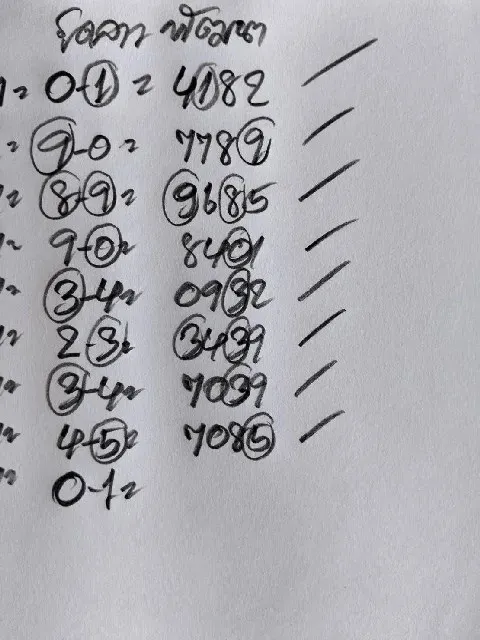 ฮุดลาว พัฒนา
= 0-1 = 4182
= 9-0 = 7789
= 8-9 = 9685
= 9-0 = 8401
= 3-4 = 0932
= 2-3 = 3439
= 3-4 = 7039
= 4-5 = 7085
= 0-1 =